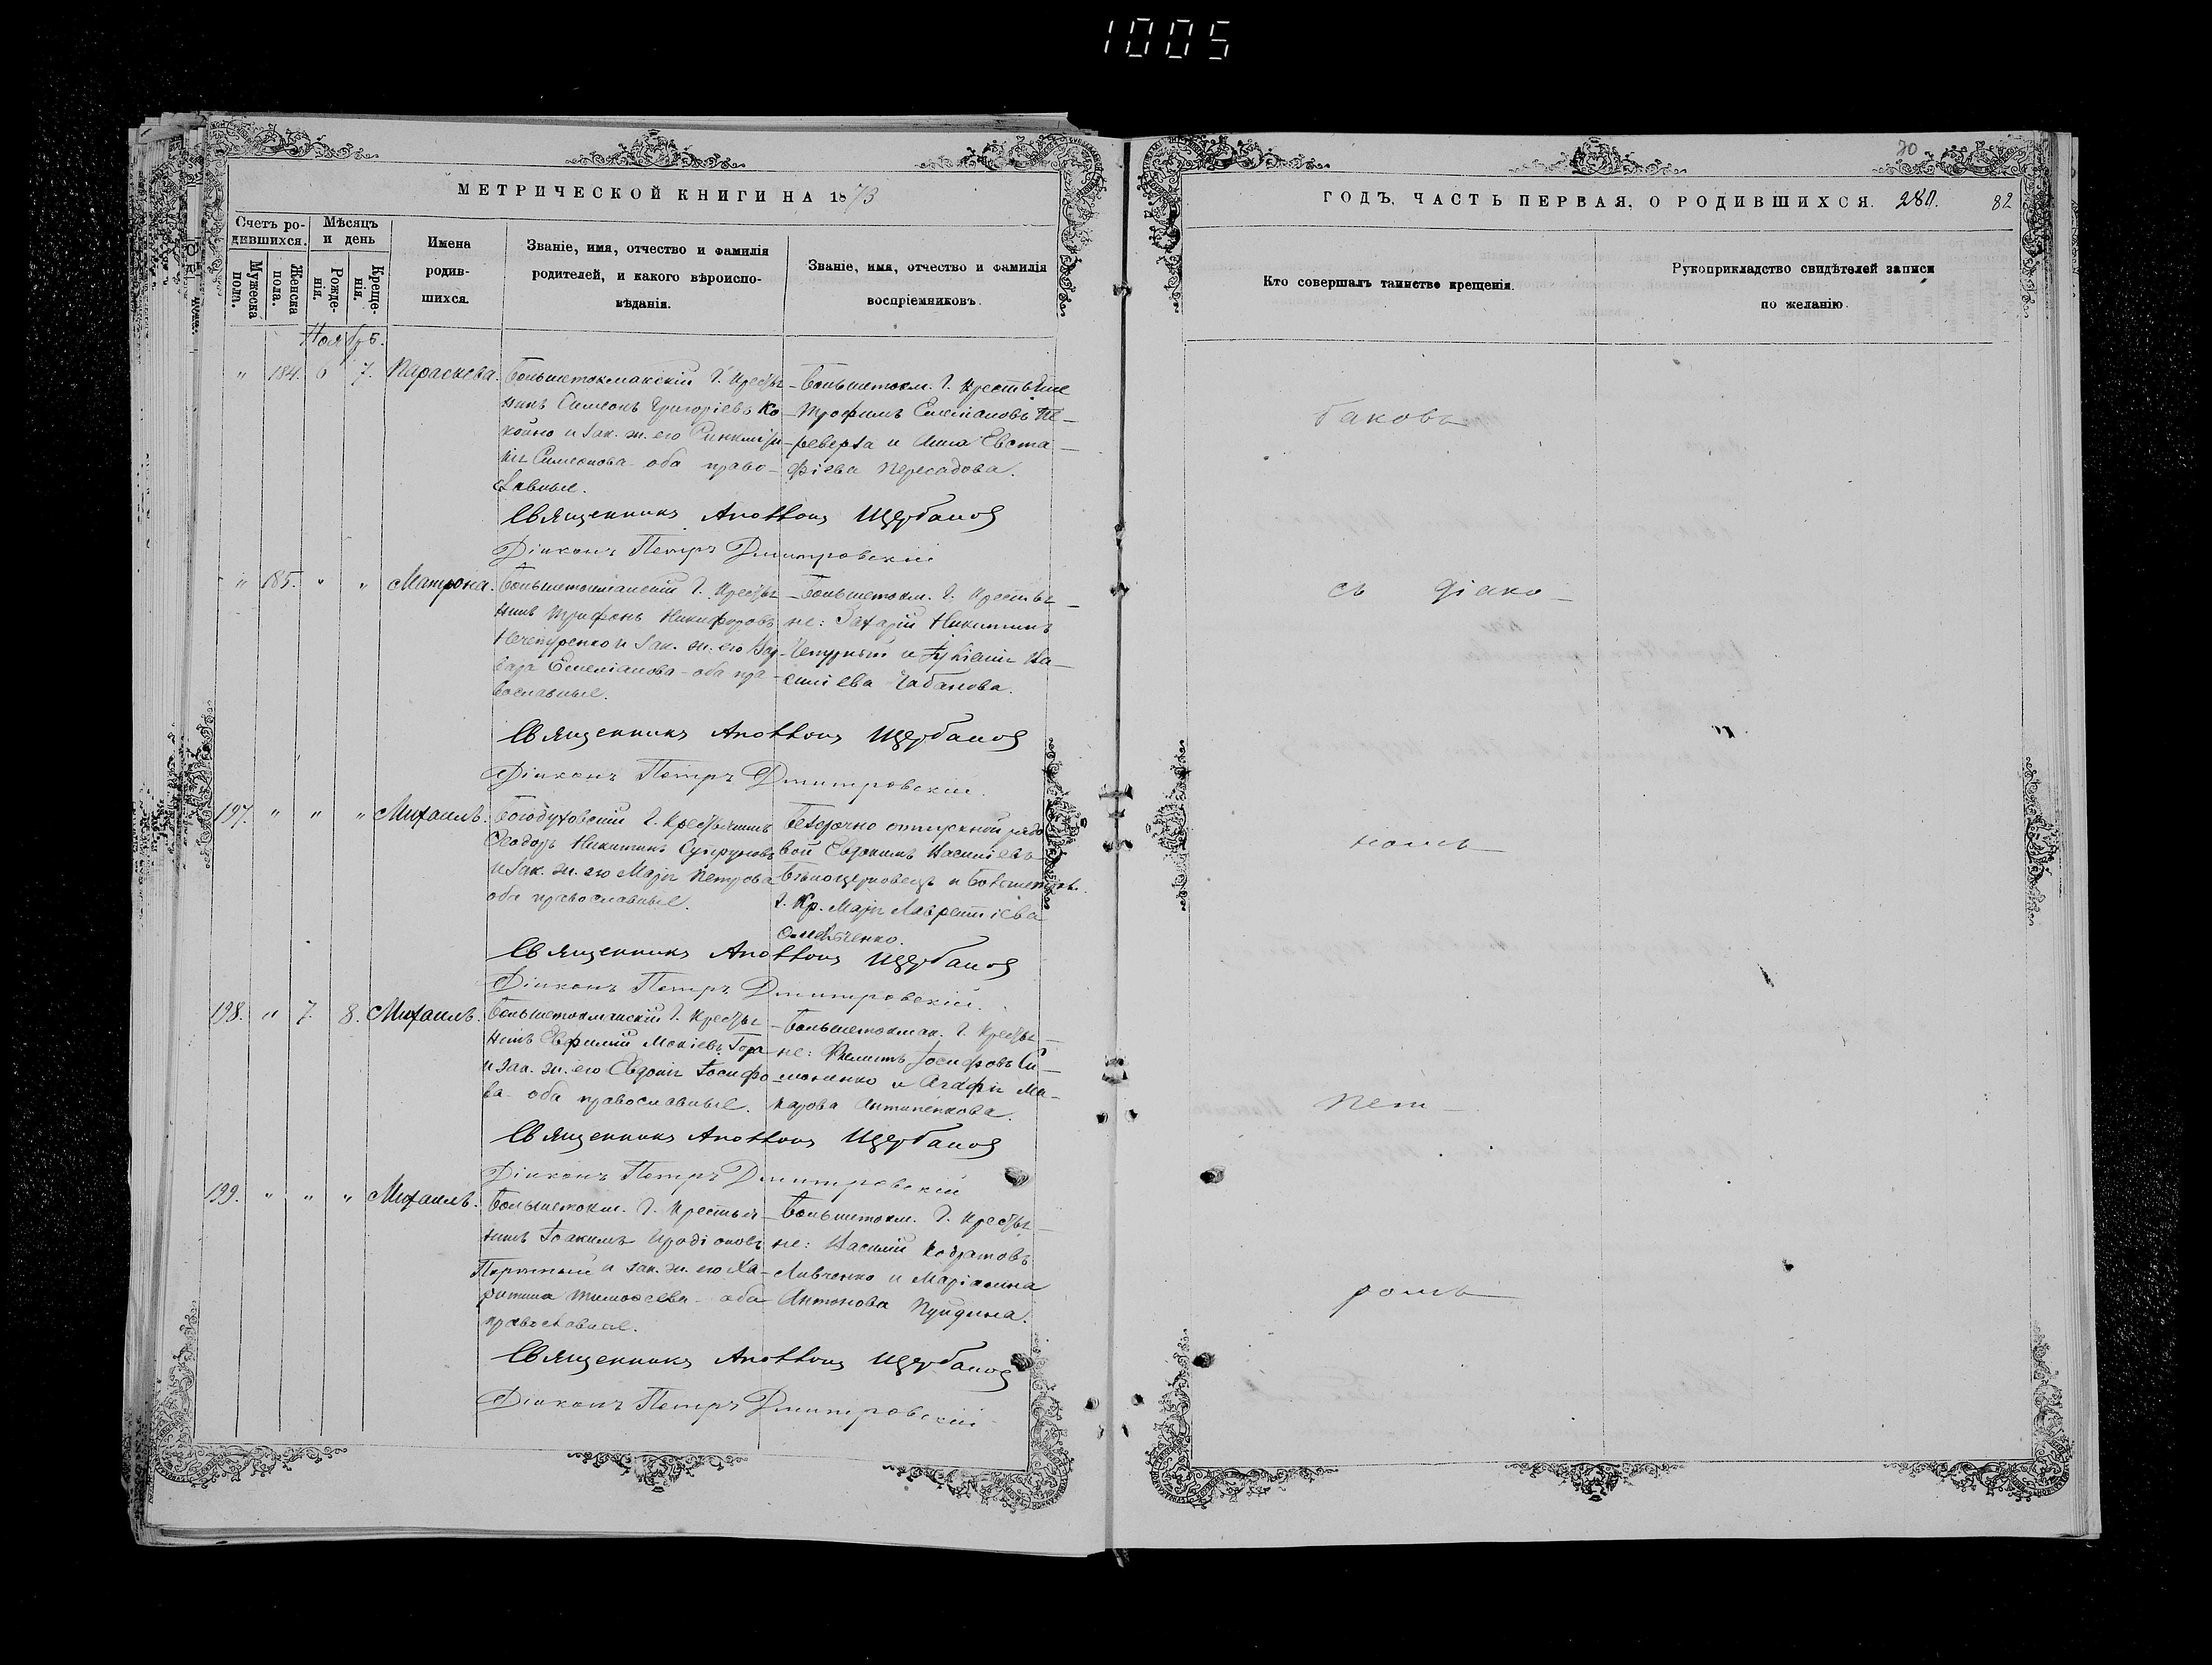 1005
МЕТРИЧЕСКОЙ КНИГИ НА 1873
Счетъ ро-
дившихся.
Мѣсяцъ
и день
Мужеска
пола.
Женска
пола.
Рожде-
нія.
Креще-
нія.
Имена
родив-
шихся.
Званіе, имя, отчество и фамилія
родителей, и какого вѣроиспо-
вѣданія.
Званіе, имя, отчество и фамилія
воспріемниковъ.
Ноябрь.
" 184. 6 7. Параскева.
Большетокмакскій Г. Крестья-
нинъ Симеонъ Григоріевъ Ко-
койко и зак. ж. его
Симеонова оба право-
славные.
Большетокм. Г. Крестьяне
Трофимъ Емеліановъ Пе-
реверза и Анна Евста-
фіева Пересадова.
Священникъ Аполлонъ Щербаковъ
Діаконъ Петръ Дмитровскій
" 185. " " Матрона.
Большетокмакскій Г. Крестья-
нинъ Трифонъ Никифоровъ
Нечепуренко и зак. ж. его Вар-
вара Емеліанова - оба пра-
вославные.
Большетокм. Г. Крестья-
не: Захарій Никитинъ
Чепурный и Ва-
силіева Чабанова.
Священникъ Аполлонъ Щербаковъ
Діаконъ Петръ Дмитровскій.
197. " " " Михаилъ.
Богодуховскій Г. Крестьянинъ
Ѳеодоръ Никитинъ Супруновъ
и зак. ж. его Марія Петрова
оба православные.
Безсрочно отпускной рядо
вой Евдокимъ Васильевъ
Бѣлоцерковецъ и Большеток.
Г. Кр. Марія Лаврентіева
Омельченко.
Священникъ Аполлонъ Щербаковъ
Діаконъ Петръ Дмитровскій.
198. " 7. 8. Михаилъ.
Большетокмакскій Г. Крестья-
нинъ Евфимій Мокіевъ Гора
и зак. ж. его Евдокія Іосифо-
ва оба православные.
Большетокмак. Г. Крестья-
не: Филиппъ Іосифовъ Си-
моненко и Агафія Ма-
карова Антипенкова.
Священникъ Аполлонъ Щербаковъ
Діаконъ Петръ Дмитровскій
199. " " " Михаилъ.
Большетокм. Г. Крестья-
нинъ Іоакимъ Иродіоновъ
Портный и зак. ж. его Ха-
ритина Тимоѳеева - оба
православные.
Большетокм. Г. Крестья-
не: Василій Кодратовъ
Левченко и Маріамна
Антонова Пундина.
Священникъ Аполлонъ Щербаковъ
Діаконъ Петръ Дмитровскій
70
ГОДЪ, ЧАСТЬ ПЕРВАЯ, О РОДИВШИХСЯ. 280. 82
Кто совершалъ таинство крещенія.
Рукоприкладство свидѣтелей записи
по желанію.
баковъ
съ діако-
номъ
Пет-
ромъ